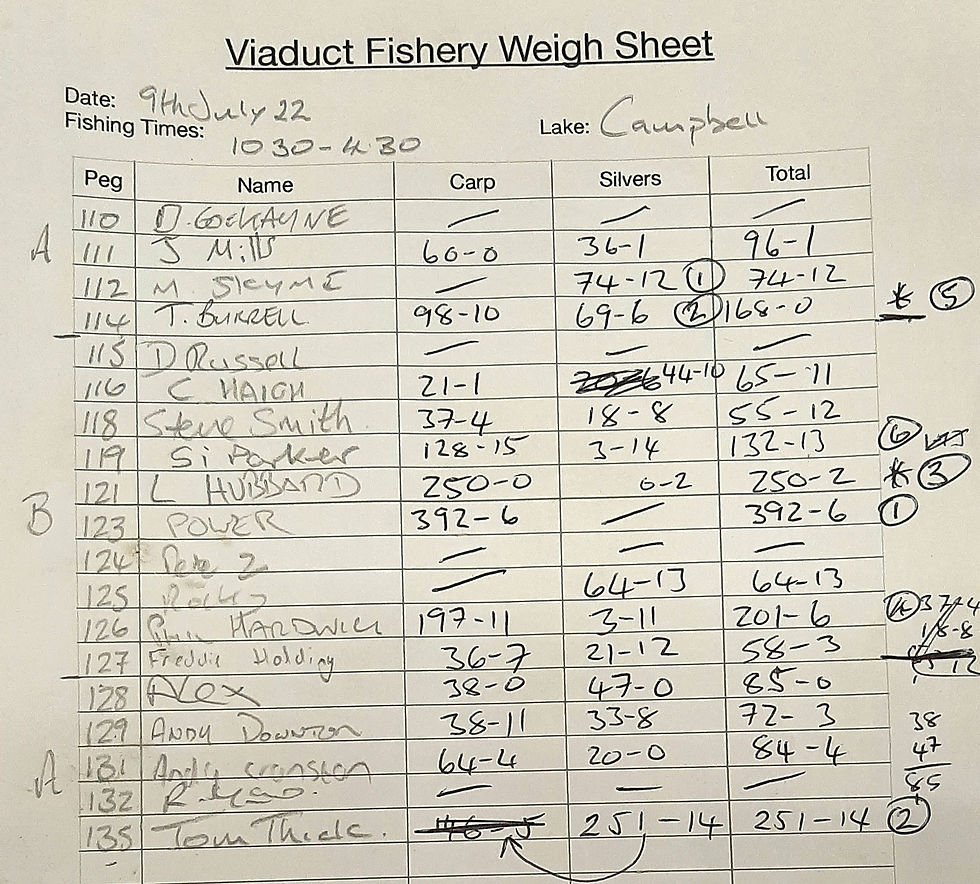 Viaduct Fishery Weigh Sheet
Date: 9th July 22
Fishing Times: 10 30 - 4.30
Lake: Campbell
Peg Name Carp Silvers Total
110 D. COCKAYNE — — —
A
111 J Mills 60-0 36-1 96-1
112 M. SKYME — 74-12 ① 74-12
114 T. BURRELL 98-10 69-6 ② 168-0 * ⑤
115 D Russell — — —
116 C HAIGH 21-1 44-10 65-11
118 Steve Smith 37-4 18-8 55-12
119 Si Parker 128-15 3-14 132-13 ⑥
121 L HUBBARD 250-0 0-2 250-2 * ③
B
123 POWER 392-6 — 392-6 ①
124 — — —
125 — 64-13 64-13
126 HARDWICK 197-11 3-11 201-6 ④ 37-4
18-8
127 Freddie Holding 36-7 21-12 58-3 55 12
128 Alex 38-0 47-0 85-0
129 ANDY DOWNTON 38-11 33-8 72-3 38
47
131 Andy Cranston 64-4 20-0 84-4 85
A
132 — — —
135 Tom Thick. 251-14 251-14 ②